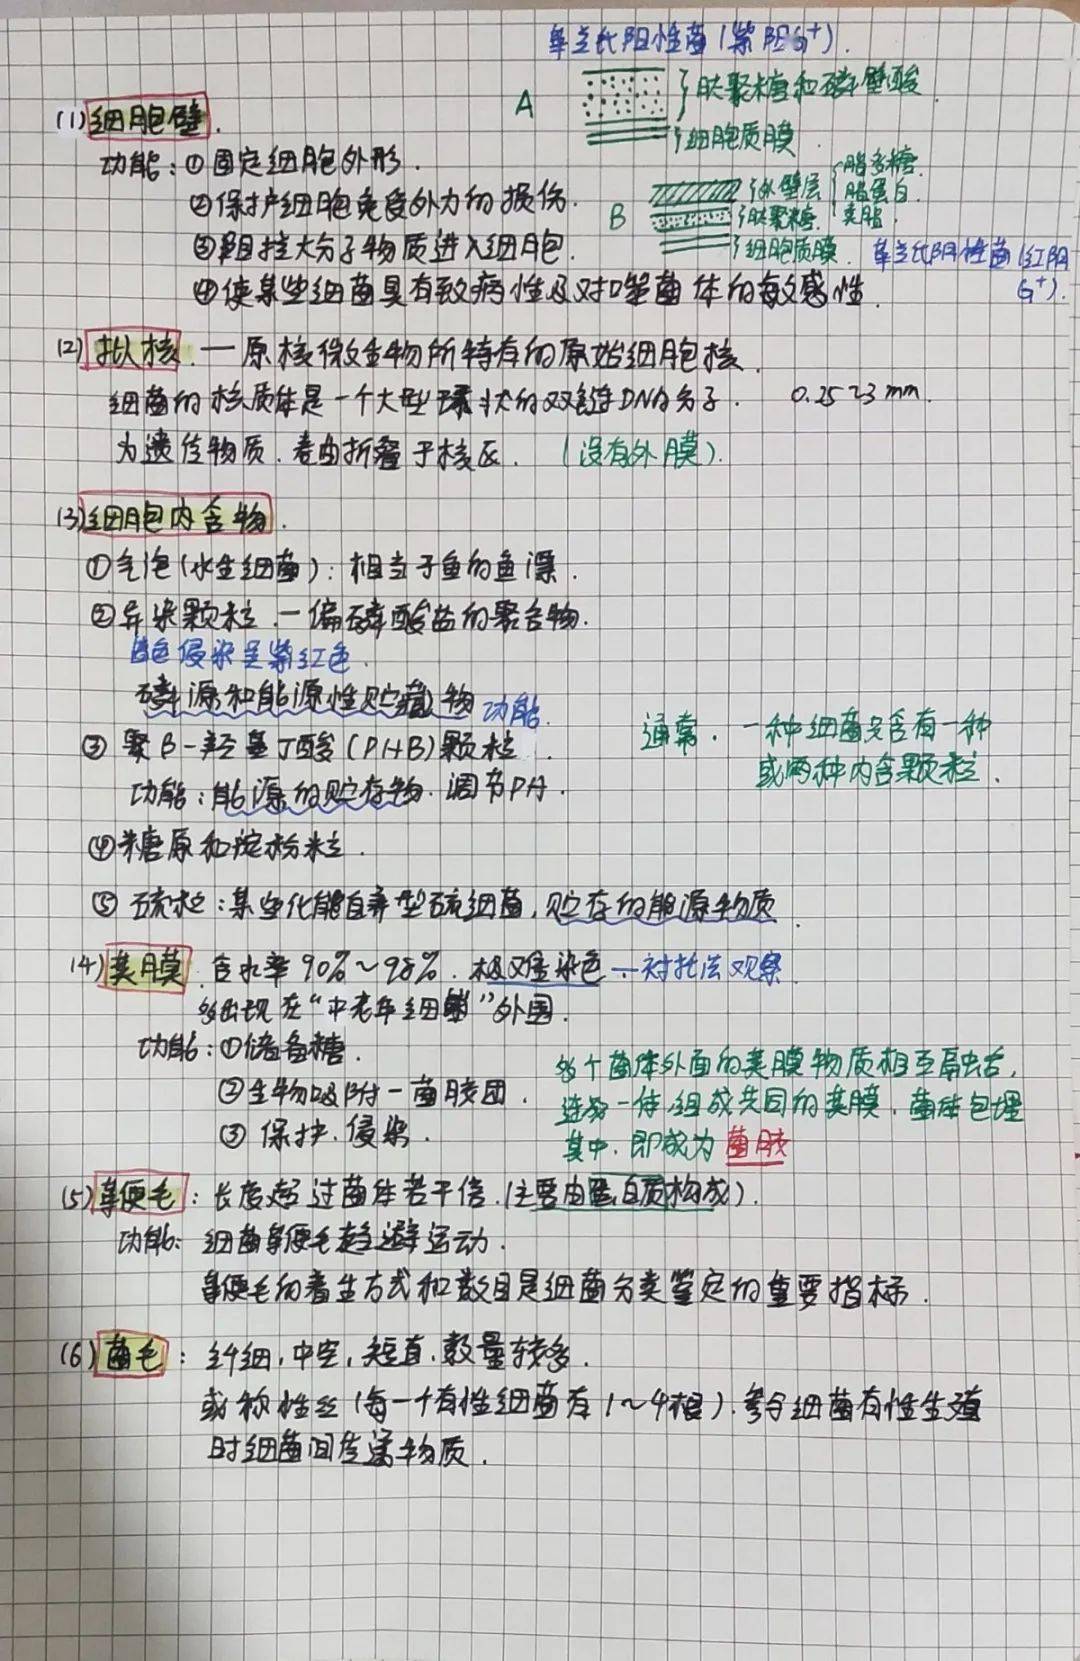 革兰氏阳性菌(紫阳G⁺).
A
肽聚糖和磷壁酸
细胞质膜
(1)细胞壁.
功能:①固定细胞外形.
②保护细胞免受外力的损伤.
③阻拦大分子物质进入细胞.
④使某些细菌具有致病性及对噬菌体的敏感性.
B
外壁层
脂多糖.
脂蛋白.
类脂.
肽聚糖.
细胞质膜.
革兰氏阴性菌(红阴
G⁺).
(2)拟核.—原核微生物所特有的原始细胞核.
细菌的核质体是一个大型环状的双链DNA分子. 0.25~3mm.
为遗传物质.卷曲折叠于核区. (没有外膜).
(3)细胞内含物.
①气泡(水生细菌):相当于鱼的鱼漂.
②异染颗粒.—偏磷酸盐的聚合物.
蓝色侵染呈紫红色.
磷源和能源性贮藏物 功能.
③聚β-羟基丁酸(PHB)颗粒
功能:能源的贮存物.调节PH.
通常.一种细菌只含有一种
或两种内含颗粒.
④糖原和淀粉粒.
⑤硫粒:某些化能自养型硫细菌,贮存的能源物质.
(4)荚膜.含水率90%~98%.极难染色—衬托法观察.
多出现在“中老年细胞”外围.
功能:①储备糖.
②生物吸附—菌胶团.
③保护.侵染.
多个菌体外面的荚膜物质相互融合,
连为一体,组成共同的荚膜.菌体包埋
其中.即成为菌胶
(5)鞭毛:长度超过菌体若干倍.(主要由蛋白质构成).
功能:细菌鞭毛趋避运动.
鞭毛的着生方式和数目是细菌分类鉴定的重要指标.
(6)菌毛:纤细,中空,短直,数量较多.
或称性丝(每一个有性细菌有1~4根).参与细菌有性生殖
时细菌间传递物质.